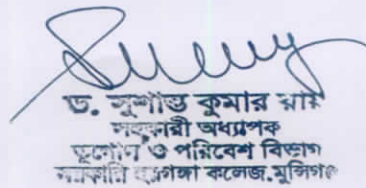 ড. সুশান্ত কুমার রায়
সহকারী অধ্যাপক
ভূগোল ও পরিবেশ বিভাগ
সরকারি হরগঙ্গা কলেজ, মুন্সিগঞ্জ